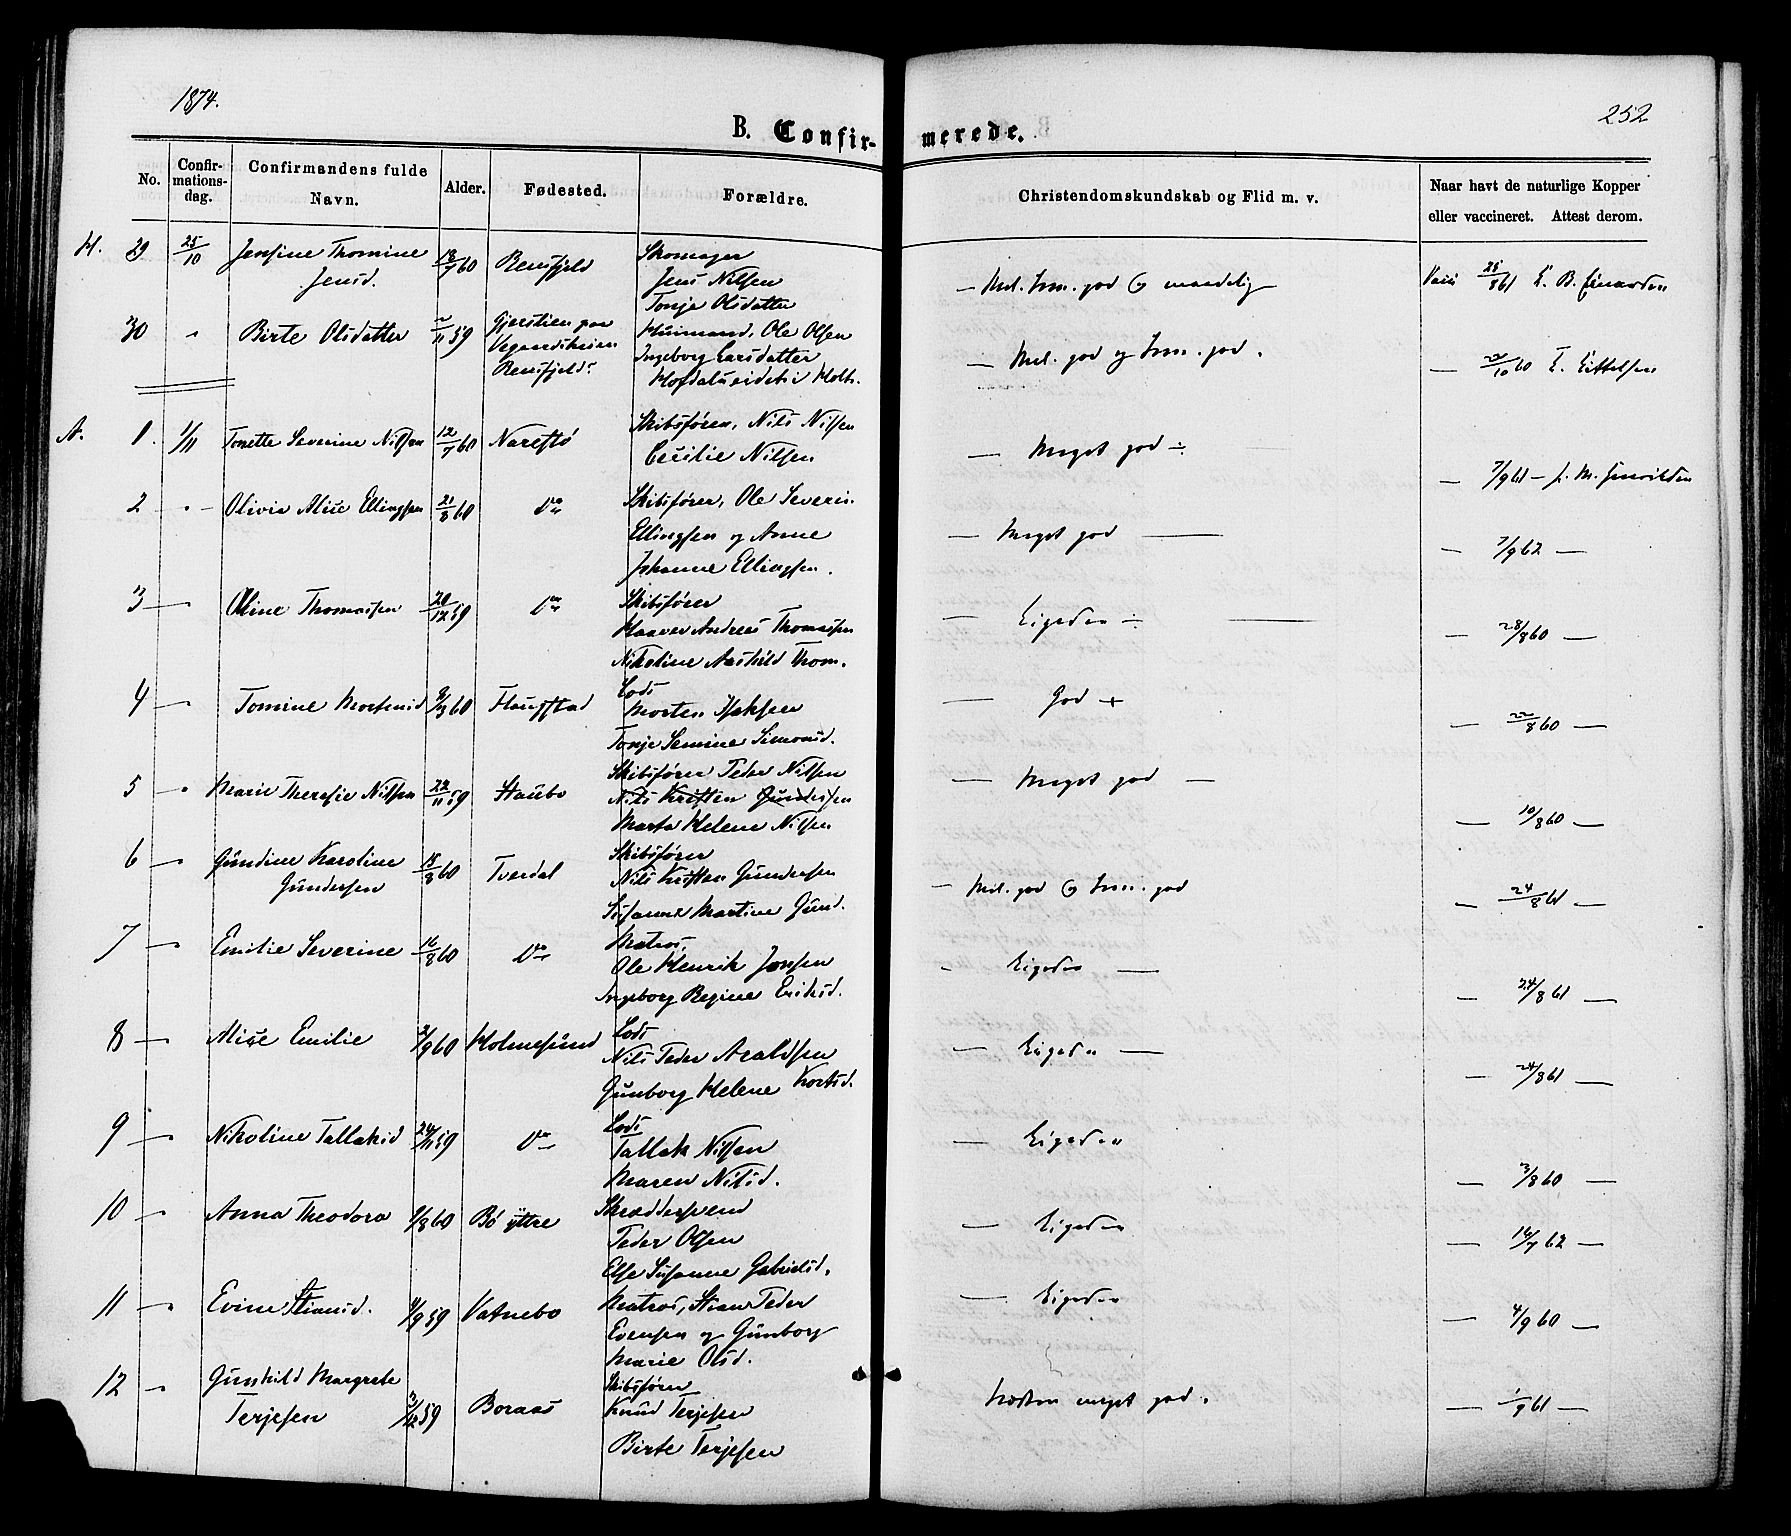 1874.
252
B. Confir-merede.
No.
Confir-mations-dag.
Confirmandens fulde Navn.
Alder.
Fødested.
Forældre.
Christendomskundskab og Flid m. v.
Naar havt de naturlige Kopper eller vaccineret. Attest derom.
H. 29 25/10 Jensine Thomine 18/7 60 Rensfjeld Skomager
Jensd. Jens Nilsen
Tonje Olsdatter
— Mel. god og maadelig
Vacc 28/8 61
30 " Birte Olsdatter 2/11 59 Gjerstien paa Huusmand, Ole Olsen
Vegaardsheien Ingeborg Larsdatter
Rensfjeld
— Mel. god og god.
— 20/10 60 E. Eittelsen
A. 1. 1/11 Tonette Severine Nilsen 12/7 60 Narestø Skibsfører, Nils Nilsen
Cecilie Nilsen
— Meget god ÷ —
— 7/9 61 —
2 - " - Olivia Alise Ellingsen 21/8 60 Do Skibsfører, Ole Severin
Ellingsen og Anne
Johanne Ellingsen.
— Meget god —
— 7/9 62 —
3 — Oline Thomassen 20/12 59 Do Skibsfører
Haaver Andreas Thomassen
Nikoline Aashild Thom.
— Ligedan ÷ —
— 28/8 60 —
4 — Tomine Mortensd 60 Flangstad Lods
Morten Isaksen
Tonje Semine Simonsd.
— God +
— 22/8 60 —
5 " Marie Theresie Nilsen 22/11 59 Staubø Skibsfører Peder Nilsen
Nils Kristen Gundersen
Marta Helene Nilsen
— Meget god —
— 10/8 60 —
6 — Gundine Karoline 18/8 60 Tverdal Skibsfører
Gundersen Nils Kristen Gundersen
Susanne Martine Gund.
— Mel. god og god
— 24/8 61 —
7 — Emilie Severine 16/8 60 Do Matros,
Ole Henrik Jonsen
Ingeborg Regine Eriksd.
— Ligedan —
— 24/8 61 —
8 — Alise Emilie 2/9 60 Holmesund Lods
Nils Peder Araldsen
Gunborg Helene Kortsd.
— Ligedan —
— 24/8 61 —
9 — Nikoline Tallaksd 24/11 59 Do Lods
Tallak Nilsen
Maren Nilsd.
— Ligedan
— 3/8 60 —
10 — Anna Theodora 1/8 60 Bø ÿttre Skræddersvend
Peder Olsen
Else Susanne Gabrielsd.
— Ligedan
— 16/7 62 —
11 — Evine Stiansd. 11/9 59 Vatnebo Matros, Stian Peder
Evensen og Gunborg
Marie Olsd.
— Ligedan
— 4/9 60 —
12 — Gunhild Margrete 3/12 59 Boraas Skibsfører
Terjesen Knud Terjesen
Birte Terjesen
Næsten meget god.
— 1/9 61 —